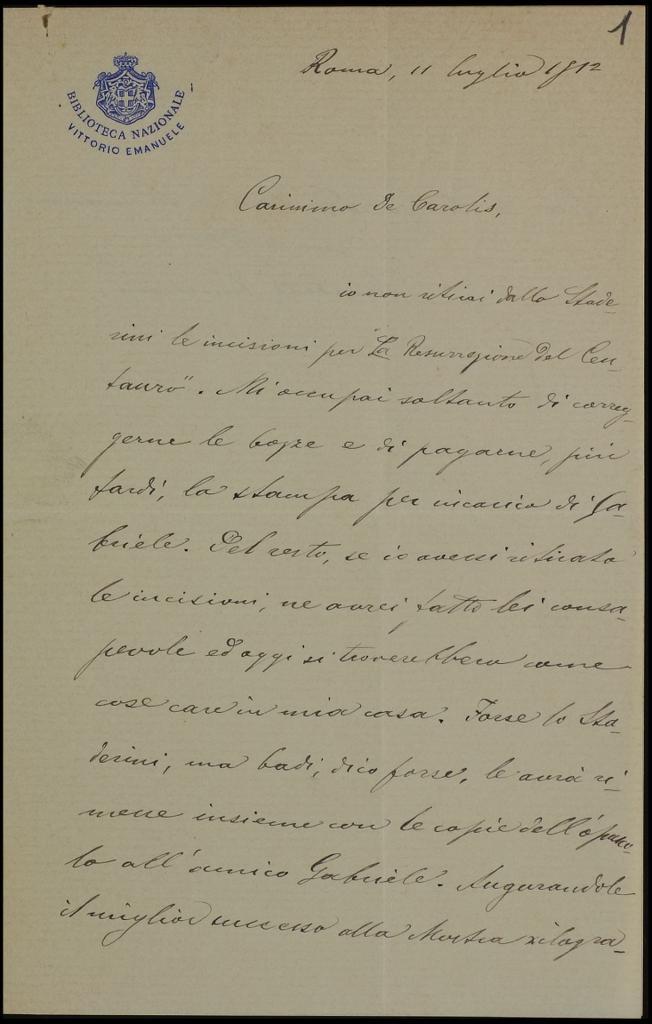 1
Roma, 11 luglio 1912
BIBLIOTECA NAZIONALE
VITTORIO EMANUELE
Carissimo De Carolis,
io non ritirai dallo Stade-
rini le incisioni per "La Resurrezione del Cen-
tauro". Mi occupai soltanto di correg-
gerne le bozze e di pagarne, più
tardi, la stampa per incarico di Ga-
briele. Del resto, se io avessi ritirato
le incisioni, ne avrei fatto lei consa-
pevole ed oggi si troverebbero come
cose care in mia casa. Forse lo Sta-
derini, ma badi, dico forse, le avrà ri-
messe insieme con le copie dell'opusco-
lo all'amico Gabriele. Augurandole
il miglior successo alla Mostra xilogra-